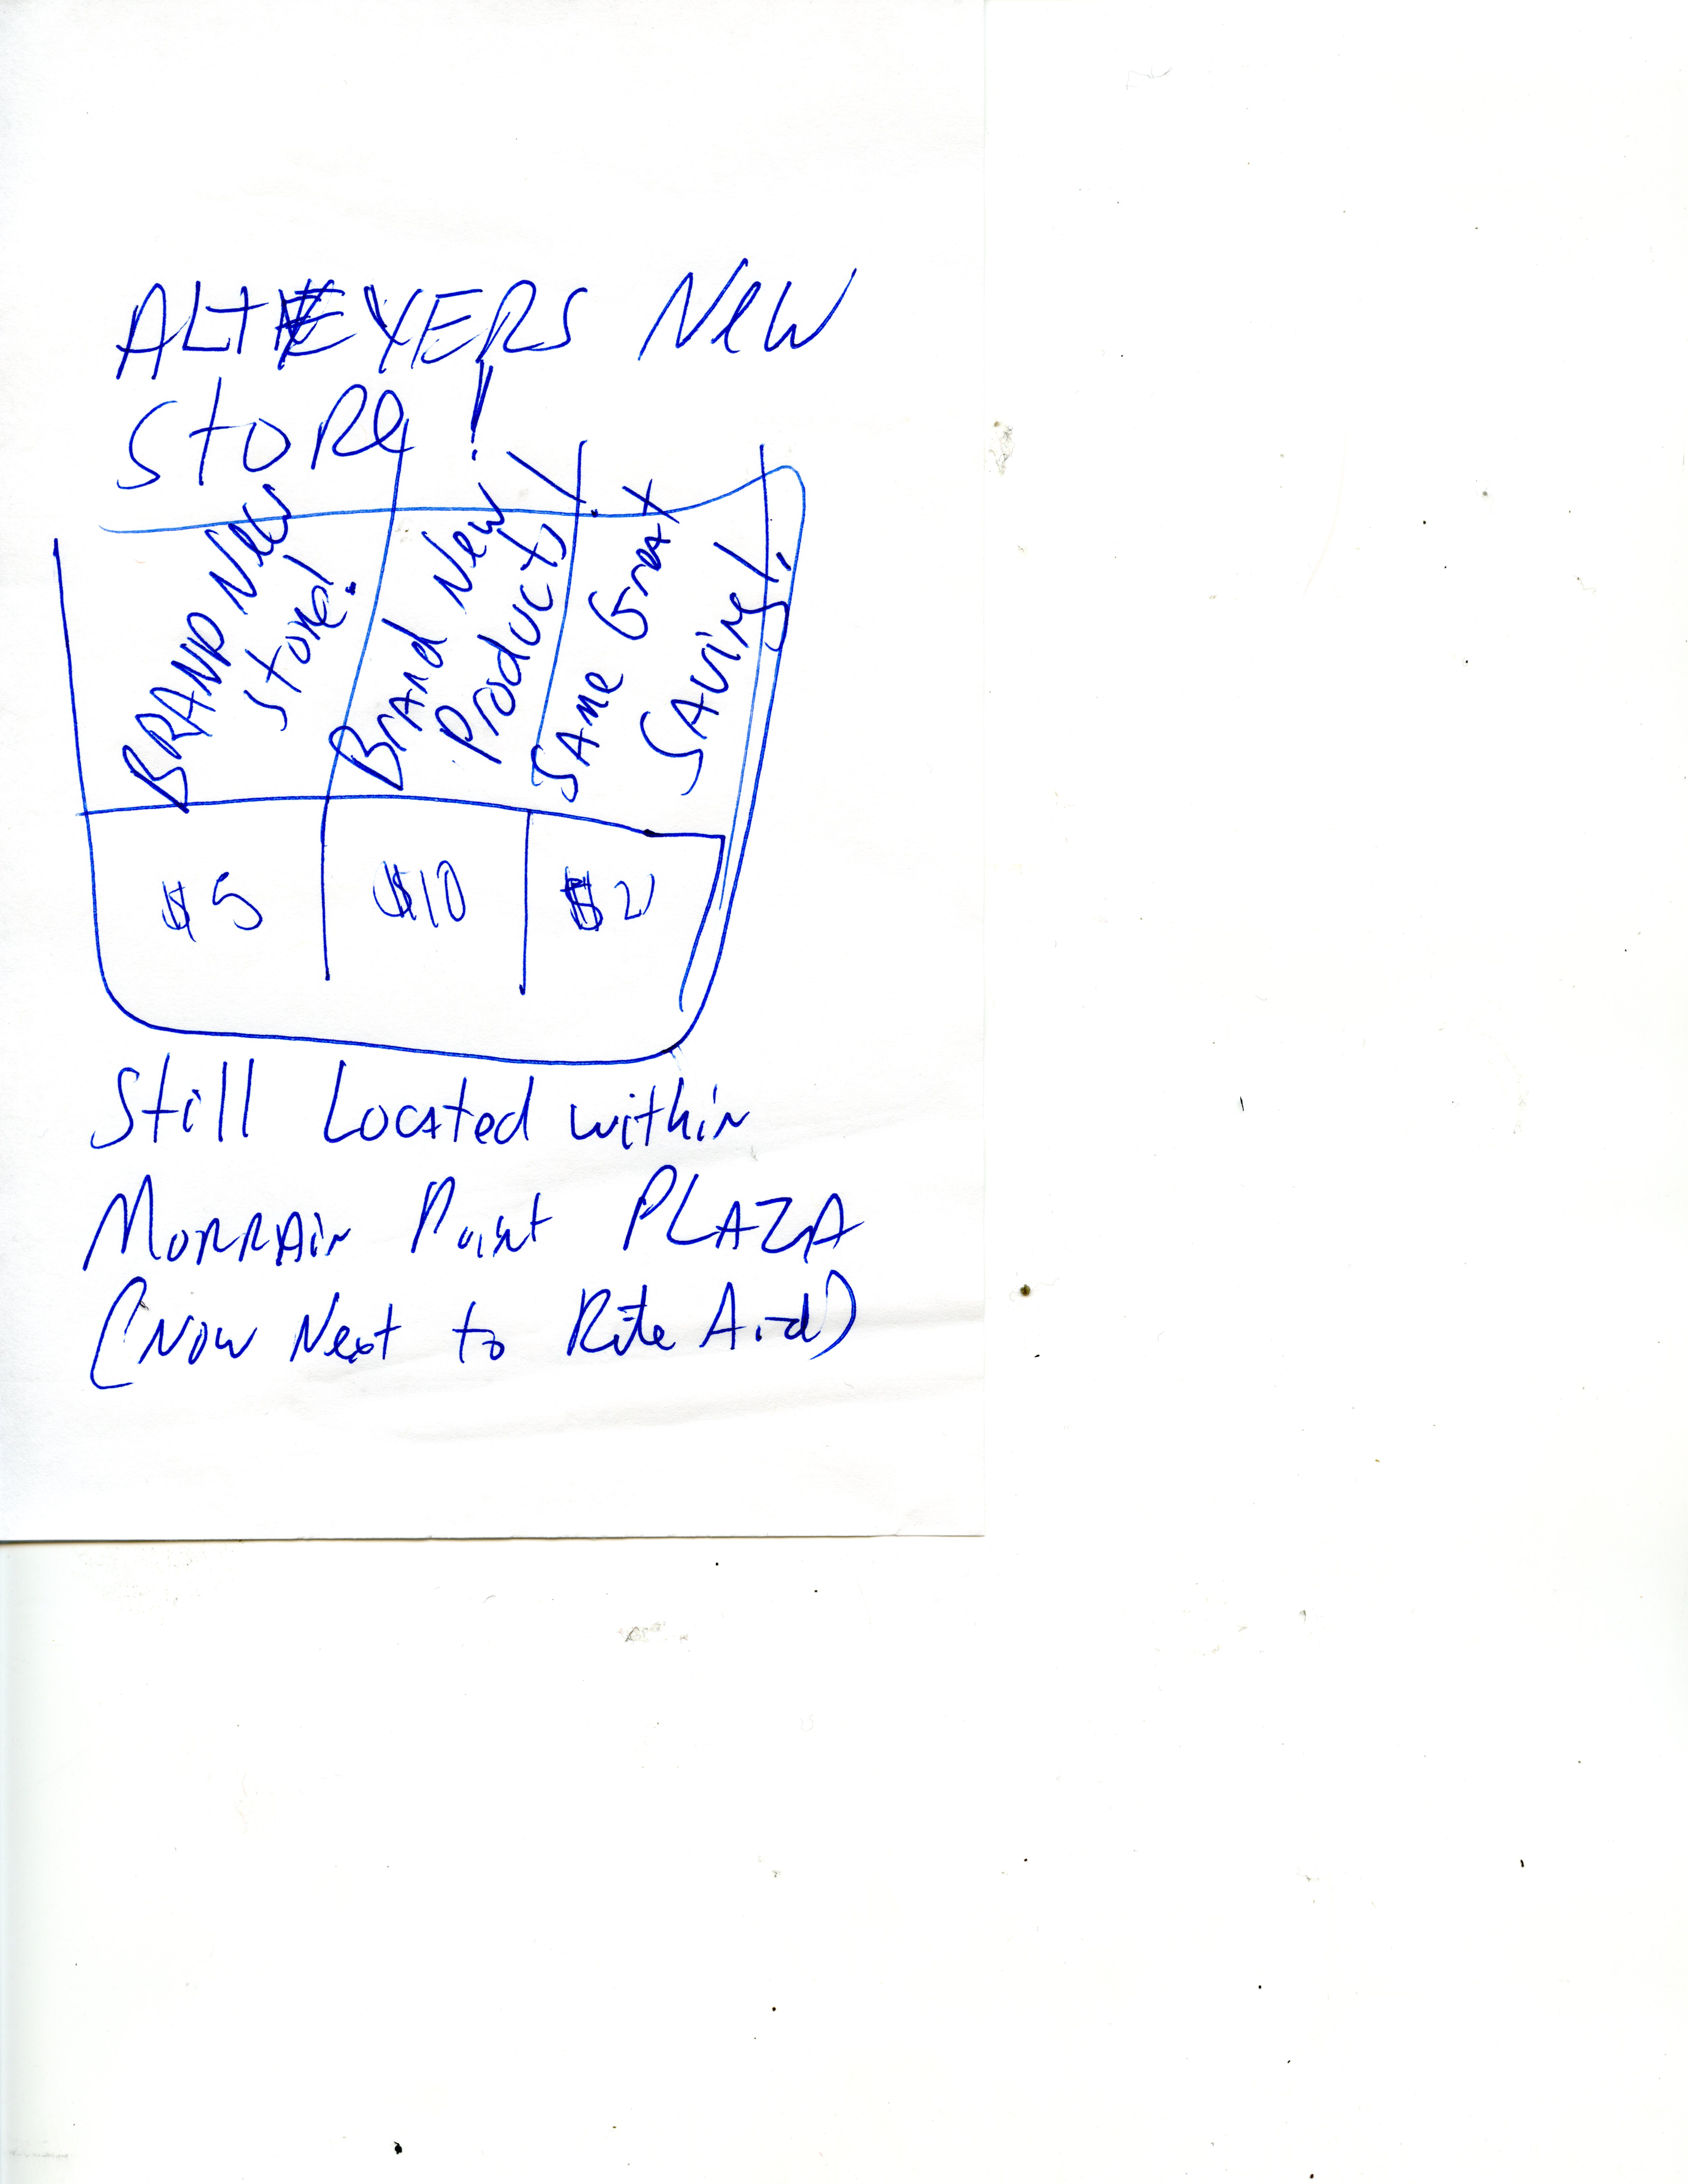 ALTEYERS New
StoRe!
BRAND New
Store!
Brand New
Products!
SAme Great
SAvings!
$5
$10
$2
Still Located within
MORRAin Point PLAZA
(Now Next to Rite Aid)